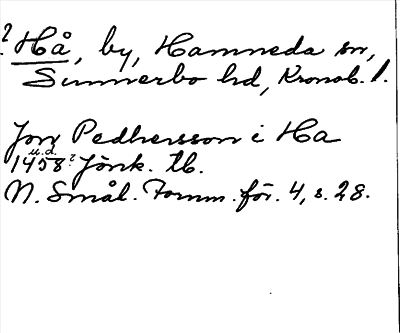 ? Hå, by, Hamneda sn,
Sunnerbo hd, Kronob. l.
Jon Pedhersson i Ha
u.d.
1458? Jönk. tb.
N. Smål. Fornm. för. 4, s. 28.